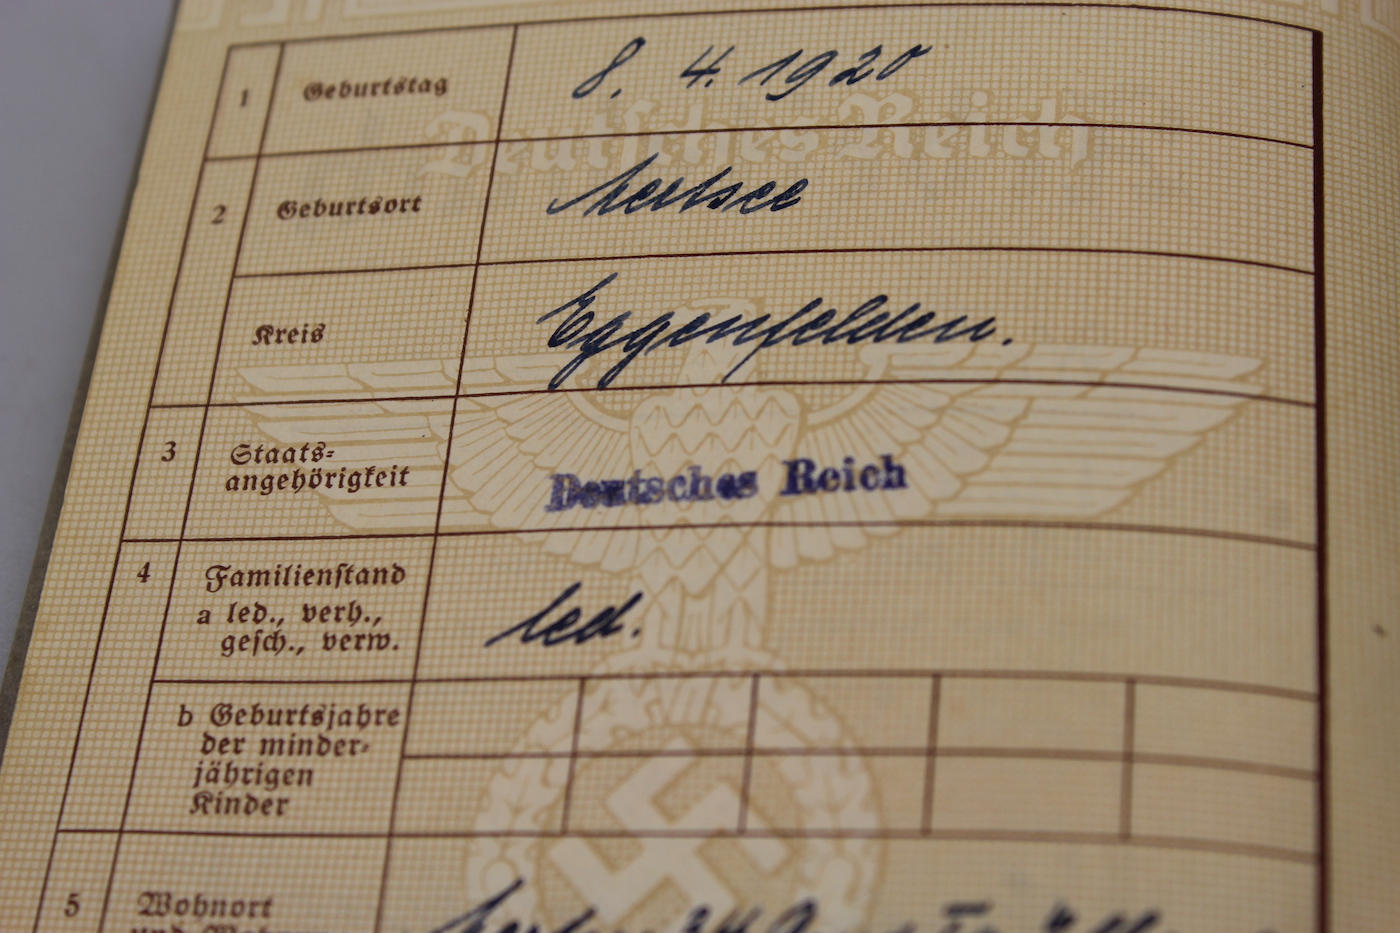 1 Geburtstag 8. 4. 1920
Deutsches Reich
2 Geburtsort
Kreis Eggenfelden.
3 Staats=
angehörigkeit Deutsches Reich
4 Familienstand
a led., verh., led.
gesch., verw.
b Geburtsjahre
der minder=
jährigen
Kinder
5 Wohnort
und